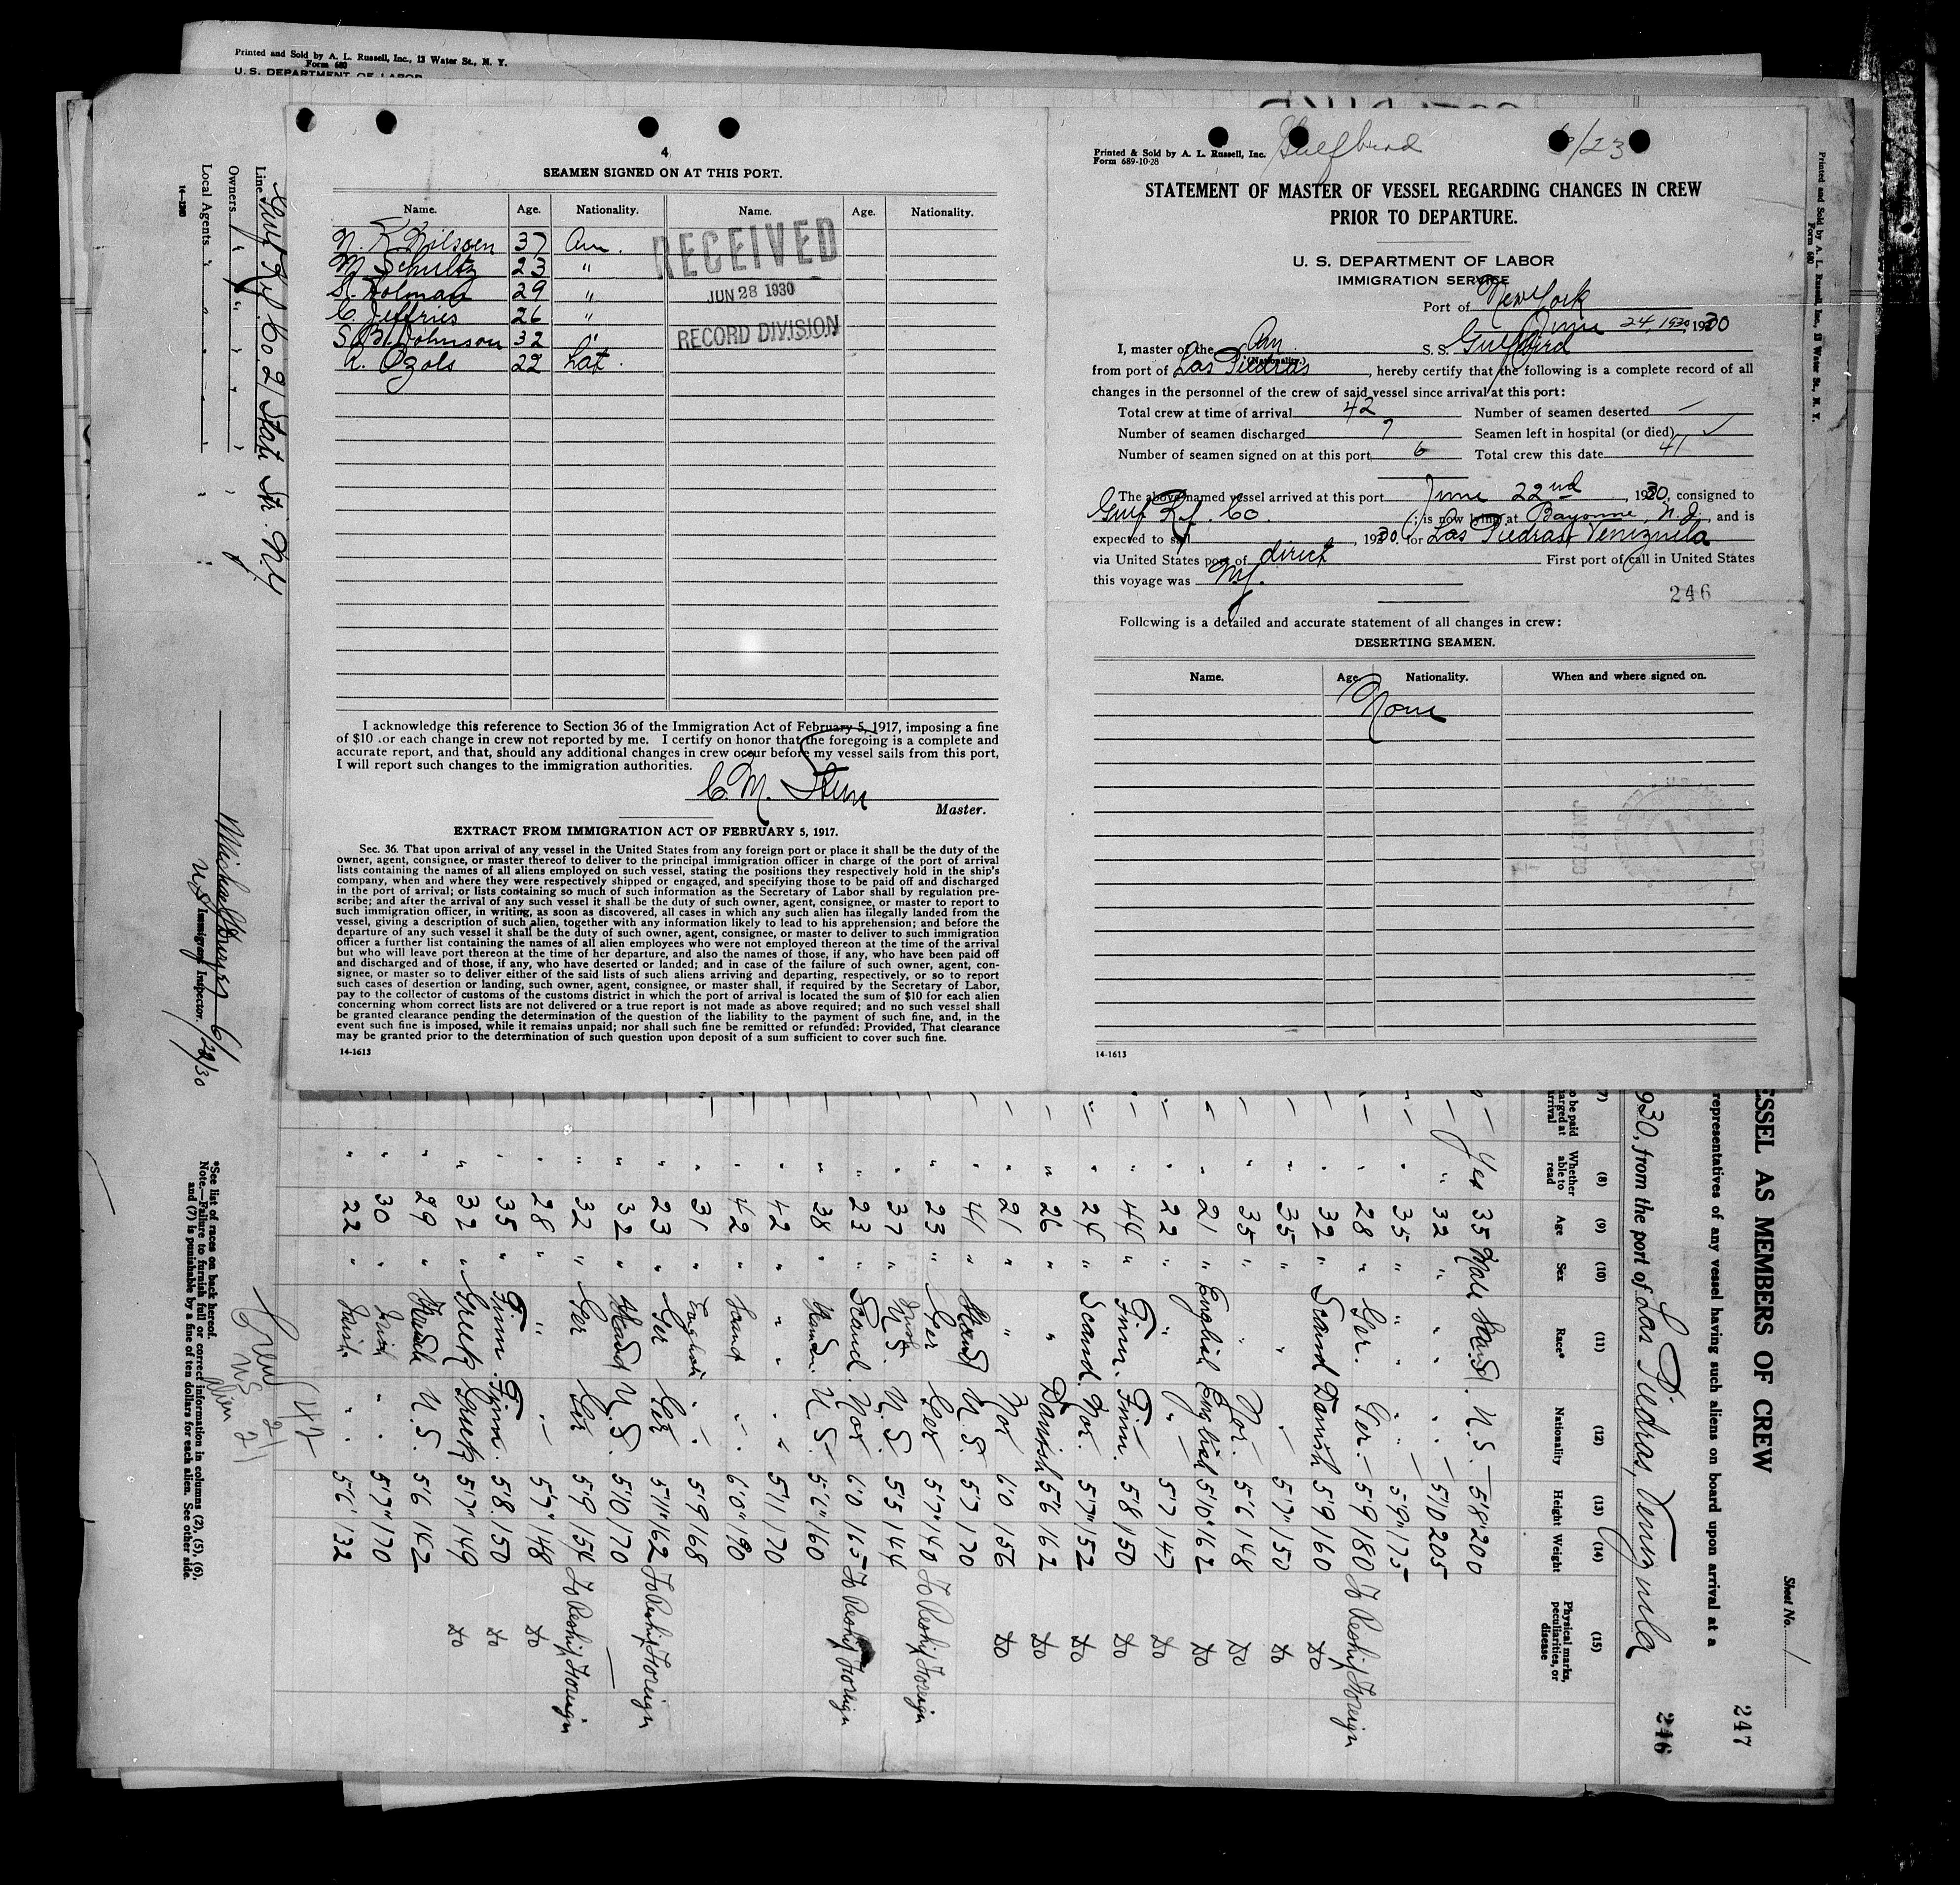 Printed and Sold by A. L. Russell, Inc., 13 Water St., N. Y.
Form 680
U. S. DEPARTMENT OF LABOR
4
SEAMEN SIGNED ON AT THIS PORT.
Name. Age. Nationality. Name. Age. Nationality.
N. K. Nilssen 37 Am.
M. Schultz 23 "
S. Holman 29 "
C. Jeffries 26 "
S. B. Johnson 32 "
A. Ozols 22 Lat.
RECEIVED
JUN 28 1930
RECORD DIVISION
I acknowledge this reference to Section 36 of the Immigration Act of February 5, 1917, imposing a fine
of $10 for each change in crew not reported by me. I certify on honor that the foregoing is a complete and
accurate report, and that, should any additional changes in crew occur before my vessel sails from this port,
I will report such changes to the immigration authorities.
C. M.
Master.
EXTRACT FROM IMMIGRATION ACT OF FEBRUARY 5, 1917.
Sec. 36. That upon arrival of any vessel in the United States from any foreign port or place it shall be the duty of the
owner, agent, consignee, or master thereof to deliver to the principal immigration officer in charge of the port of arrival
lists containing the names of all aliens employed on such vessel, stating the positions they respectively hold in the ship's
company, when and where they were respectively shipped or engaged, and specifying those to be paid off and discharged
in the port of arrival; or lists containing so much of such information as the Secretary of Labor shall by regulation pre-
scribe; and after the arrival of any such vessel it shall be the duty of such owner, agent, consignee, or master to report to
such immigration officer, in writing, as soon as discovered, all cases in which any such alien has illegally landed from the
vessel, giving a description of such alien, together with any information likely to lead to his apprehension; and before the
departure of any such vessel it shall be the duty of such owner, agent, consignee, or master to deliver to such immigration
officer a further list containing the names of all alien employees who were not employed thereon at the time of the arrival
but who will leave port thereon at the time of her departure, and also the names of those, if any, who have been paid off
and discharged and of those, if any, who have deserted or landed; and in case of the failure of such owner, agent, con-
signee, or master so to deliver either of the said lists of such aliens arriving and departing, respectively, or so to report
such cases of desertion or landing, such owner, agent, consignee, or master shall, if required by the Secretary of Labor,
pay to the collector of customs of the customs district in which the port of arrival is located the sum of $10 for each alien
concerning whom correct lists are not delivered or a true report is not made as above required; and no such vessel shall
be granted clearance pending the determination of the question of the liability to the payment of such fine, and, in the
event such fine is imposed, while it remains unpaid; nor shall such fine be remitted or refunded: Provided, That clearance
may be granted prior to the determination of such question upon deposit of a sum sufficient to cover such fine.
14-1613
Printed & Sold by A. L. Russell, Inc.
Form 689-10-28
Gulfbird 6/23
STATEMENT OF MASTER OF VESSEL REGARDING CHANGES IN CREW
PRIOR TO DEPARTURE.
U. S. DEPARTMENT OF LABOR
IMMIGRATION SERVICE
Port of New York
June 24, 1930, 1930
I, master of the Am. S. S. Gulfbird
(Nationality.)
from port of Las Piedras, hereby certify that the following is a complete record of all
changes in the personnel of the crew of said vessel since arrival at this port:
Total crew at time of arrival 42 Number of seamen deserted —
Number of seamen discharged 7 Seamen left in hospital (or died) ✓
Number of seamen signed on at this port 6 Total crew this date 41
The above-named vessel arrived at this port June 22nd, 1930, consigned to
Gulf Rf. Co.; is now lying at Bayonne, N. J., and is
expected to sail , 1930, for Las Piedras, Venezuela
via United States port of direct First port of call in United States
this voyage was N.Y.
246
Following is a detailed and accurate statement of all changes in crew:
DESERTING SEAMEN.
Name. Age. Nationality. When and where signed on.
None
14-1613
Printed and Sold by A. L. Russell, Inc., 13 Water St., N. Y.
Form 680
Line Gulf Rf. Co. 21 State St. N.Y.
Owners " " " "
Local Agents " " " "
14-1240
U.S. Immigrant Inspector. 6/22/30
*See list of races on back hereof.
Note.—Failure to furnish full or correct information in columns (2), (5), (6),
and (7) is punishable by a fine of ten dollars for each alien. See other side.
Crew 42
US 21
Alien 21
Sheet No. 1
247
246
ESSEL AS MEMBERS OF CREW
representatives of any vessel having such aliens on board upon arrival at a
930, from the port of Las Piedras, Venezuela
(7) (8) (9) (10) (11) (12) (13) (14) (15)
o be paid
arged at
arrival
Whether
able to
read
Age Sex Race* Nationality Height Weight
Physical marks,
peculiarities, or
disease
— Yes 35 Male Scand. U.S. — 5'8" 200
" 32 " " " — 5'10 205
— " 35 " " " — 5'9" 175
— " 28 " Ger. Ger. — 5'9 180 To Reship Foreign
— " 32 " Scand Danish 5'9 160 do
— " 35 " " — 5'7" 150 do
— " 35 " " Nor. 5'6 148 do
— " 21 " English English 5'10" 162 do
— " 22 " " " — 5'7 147 do
— " 44 " Finn. Finn. 5'8 150 do
— " 24 " Scand. Nor. 5'7" 152 do
— " 26 " " Danish 5'6 162 do
— " 21 " " Nor 6'0 156 do
— " 41 " Scand U.S. 5'7 170
— " 23 " Ger Ger 5'7" 140 To Reship Foreign
— " 37 " Irish U.S. 5'5 144
— " 23 " Scand. Nor 6'0 165 To Reship Foreign
— " 38 " U.S. 5'6" 160
— " 42 " " " 5'11 170
— " 42 " Scand " 6'0" 190
— " 31 " English " 5'9 168
— " 23 " Ger Ger 5'11" 162 To Reship Foreign
— " 32 " Scand U.S. 5'10 170 —
— " 32 " Ger Ger 5'9 154 To Reship Foreign
— " 28 " " — 5'7" 148 do
— " 35 " Finn. Finn. 5'8 150 do
— " 32 " Greek Greek 5'7" 149 do
— " 29 " U.S. 5'6 142
" 30 " Irish " 5'7" 170
" 22 " Irish " 5'6 132